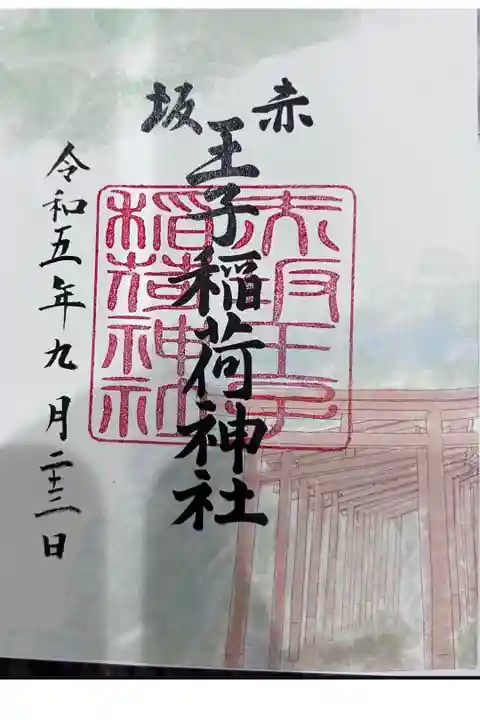 赤坂
王子稲荷神社
令和五年九月二十三日
赤坂王子
稲荷神社